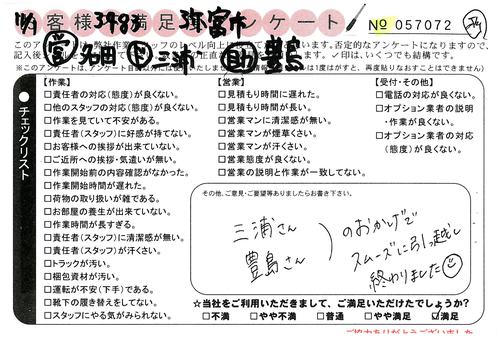 お客様満足度アンケート
No 057072
※このアンケート
【作業】
□責任者の対応(態度)が良くない。
□他のスタッフの対応(態度)が良くない。
□作業を見ていて不安がある。
□責任者(スタッフ)に好感が持てない。
□お客様への挨拶が出来ていない。
□ご近所への挨拶・気遣いが無い。
□作業開始前の内容確認がなかった。
□作業開始時間が遅れた。
□荷物の取り扱いが雑である。
□お部屋の養生が出来ていない。
□作業時間が長すぎる。
□責任者(スタッフ)に清潔感が無い。
□責任者(スタッフ)が汗くさい。
□トラックが汚い。
□梱包資材が汚い。
□運転が不安(下手)である。
□靴下の履き替えをしてない。
□スタッフにやる気がみられない。
【営業】
□見積もり時間に遅れた。
□見積もり時間が長い。
□営業マンに清潔感が無い。
□営業マンが煙草くさい。
□営業マンが汗くさい。
□営業態度が良くない。
□営業の説明と作業が一致してない。
【受付・その他】
□電話の対応が良くない。
□オプション業者の説明
・作業が良くない。
□オプション業者の対応
(態度)が良くない。
●チェックリスト
その他、ご意見・ご要望等ありましたらお書き下さい。
三浦さん
豊島さん
のおかげで
スムーズに引っ越し
終わりました
☆当社をご利用いただきまして、ご満足いただけてでしょうか?
□不満 □やや不満 □普通 □やや満足 ☑満足
ご協力ありがとうございました